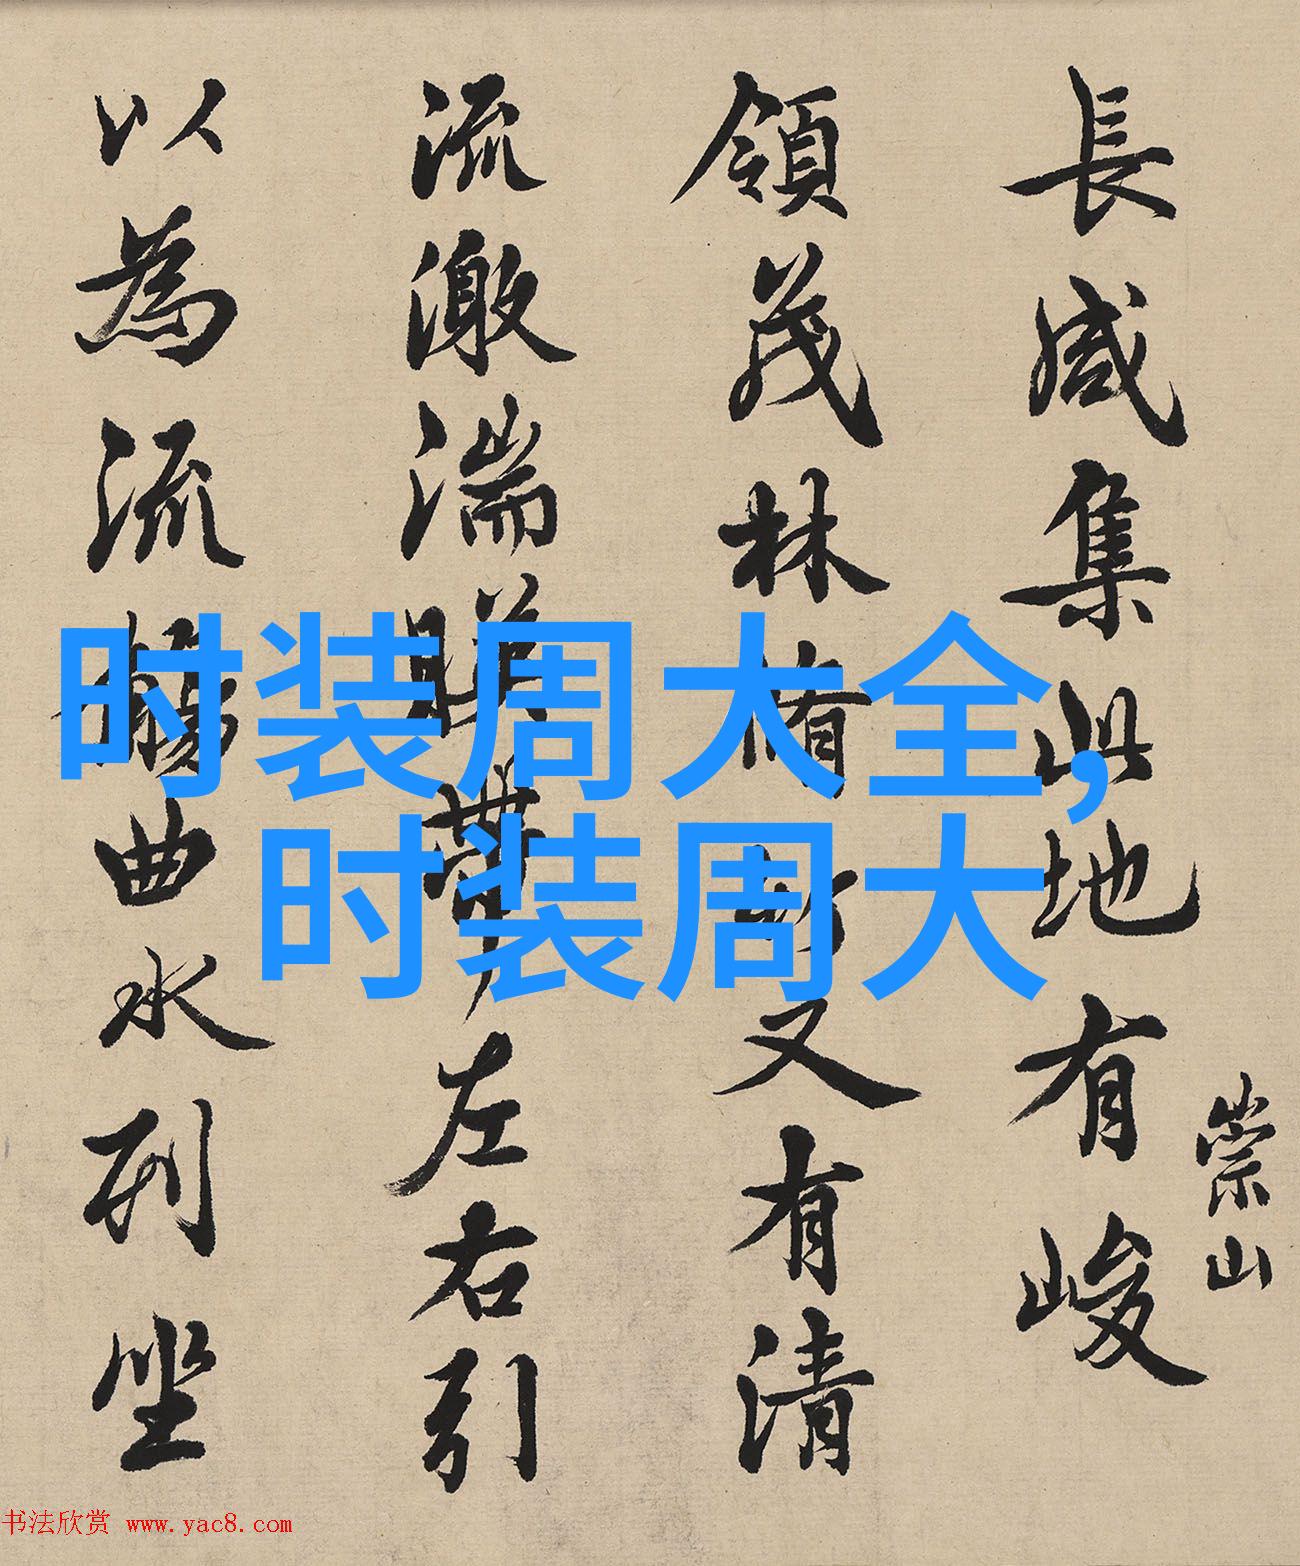 崇山
長咸集此地有峻
領茂林脩竹又有清
流激湍暎帶左右引
以為流觴曲水列坐
时装周大全,
时装周大
书法欣赏 www.yac8.com